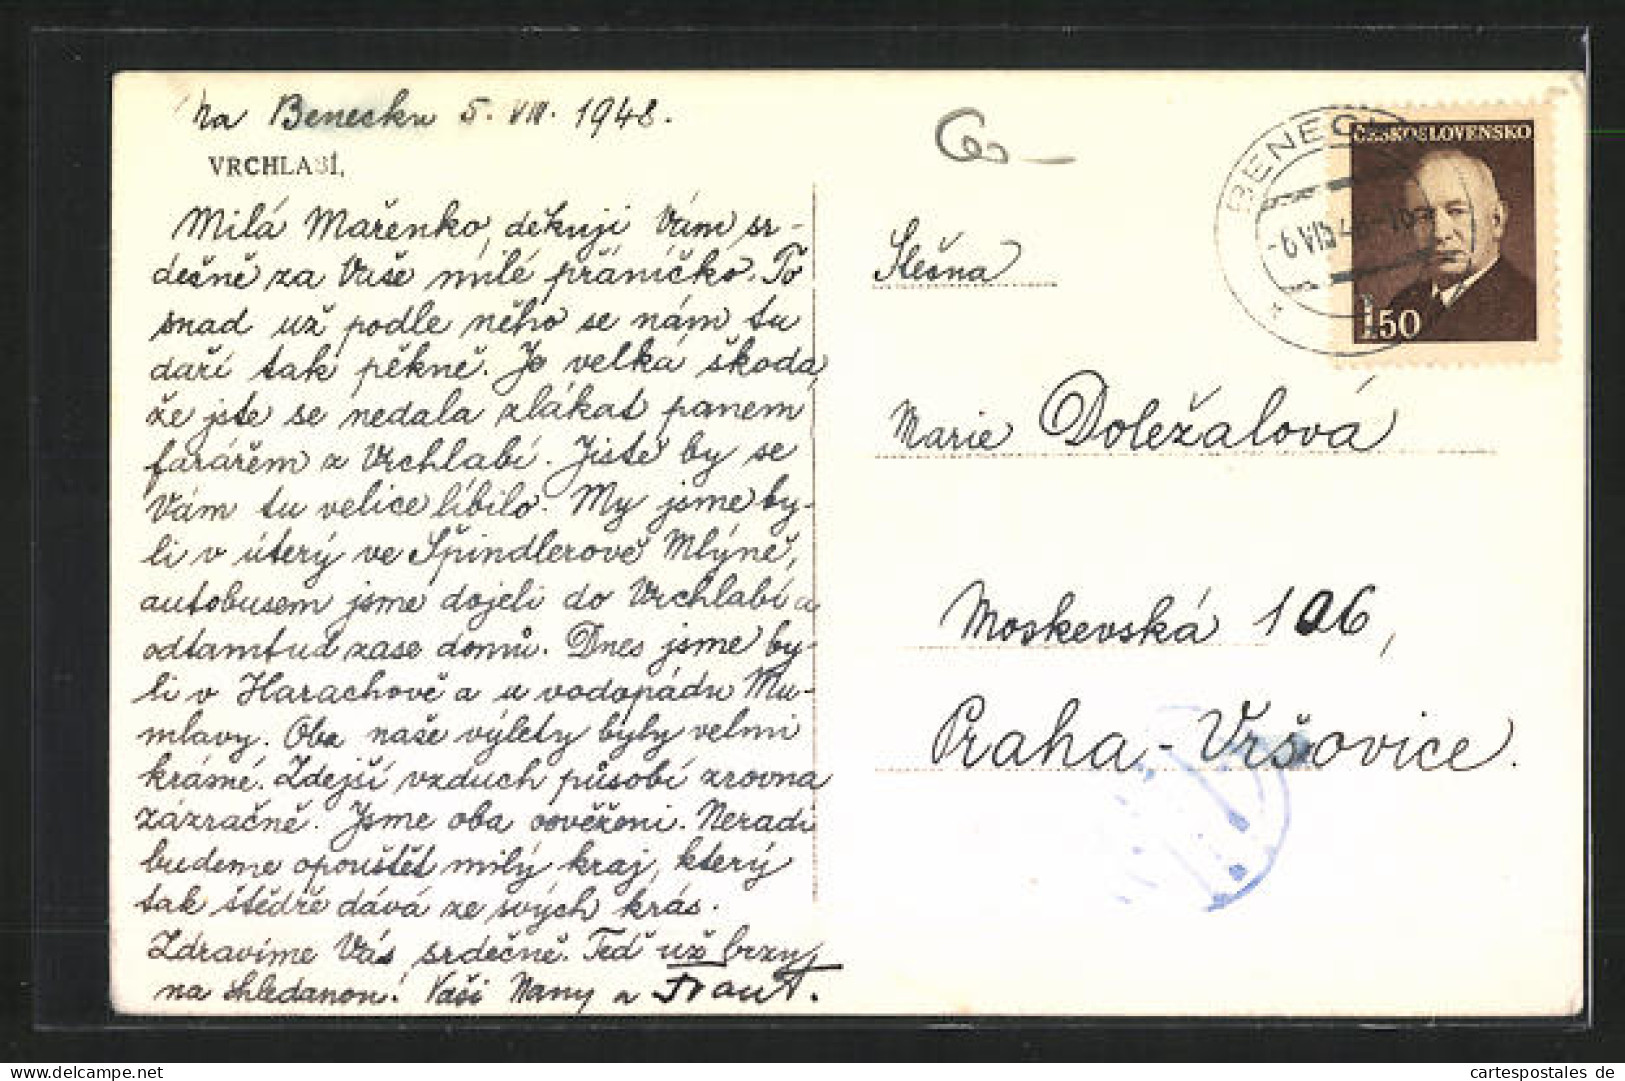 Na Benecku 5. VIII. 1948.
VRCHLABÍ,
Milá Mařenko, děkuji Vám sr-
dečně za Vaše milé přáníčko. To
snad už podle něho se nám tu
daří tak pěkně. Je velká škoda,
že jste se nedala zlákat panem
farářem z Vrchlabí. Jistě by se
Vám tu velice líbilo. My jsme by-
li v úterý ve Špindlerově Mlýně,
autobusem jsme dojeli do Vrchlabí a
odtamtud zase domů. Dnes jsme by-
li v Harachově a u vodopádu Mu-
mlavy. Oba naše výlety byly velmi
krásné. Zdejší vzduch působí zrovna
zázračně. Jsme oba osvěženi. Neradi
budeme opouštět milý kraj, který
tak štědře dává ze svých krás.
Zdravíme Vás srdečně. Teď už brzy
na shledanou! Vaši Many a
ČESKOSLOVENSKO
1.50
BENECKO
6.VIII.48-10
Slečna
Marie Doležalová
Moskevská 106,
Praha-Vršovice.
www.cartespostales.de